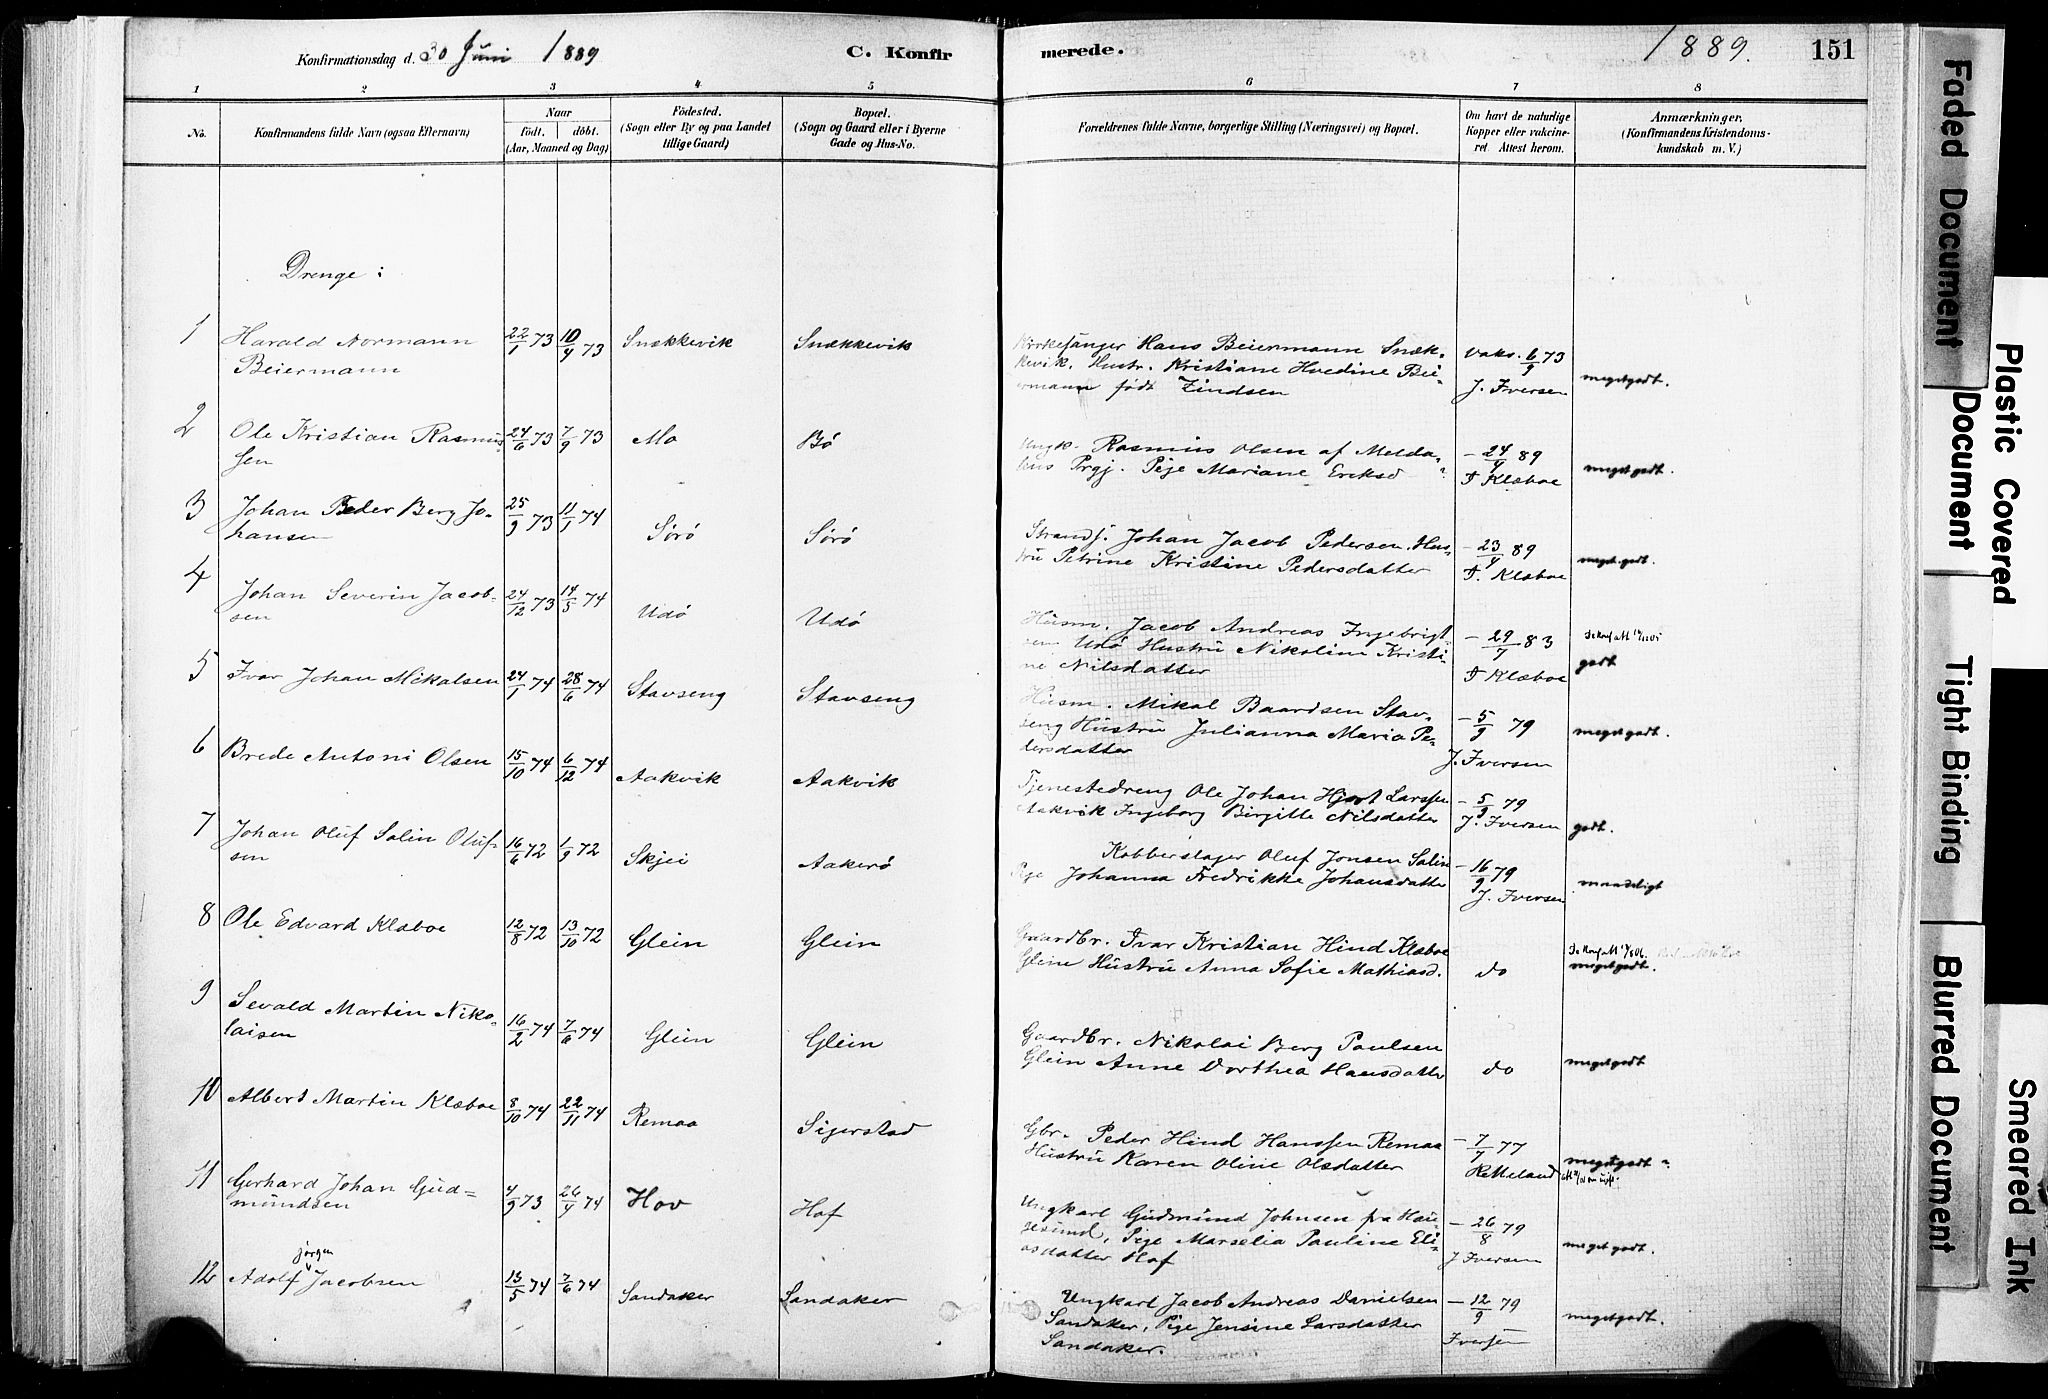 Konfirmationsdag d. 30 Juni 1889
C. Konfirmerede.
1889.
151
1 2 3 4 5 6 7 8
No.
Konfirmandens fulde Navn (ogsaa Efternavn)
Naar
födt. döbt.
(Aar, Maaned og Dag)
Födested.
(Sogn eller By og paa Landet
tillige Gaard)
Bopæl.
(Sogn og Gaard eller i Byerne
Gade og Hus-No.
Forældrenes fulde Navne, borgerlige Stilling (Næringsvei) og Bopæl.
Om havt de naturlige
Kopper eller vakcine-
ret. Attest herom.
Anmærkninger.
(Konfirmandens Kristendoms-
kundskab m. V.)
Drenge:
1 Harald Normann
Beiermann
22/1 73 10/4 73 Snækkevik Snækkevik
Kirkesanger Hans Beiermann Snæk-
kevik. Hustr. Kristiane Hvedine Bei-
ermann født Zindsen
Vaks. 6/9 73
J. Iversen
megetgodt.
2 Ole Kristian Rasmus
sen
24/6 73 7/9 73 Mo Bø
Ungk. Rasmus Olsen af Melda-
hus Prgj. Pige Mariane Eriksd
- 24/4 89
F Klæboe
megetgodt.
3 Johan Peder Berg Jo-
hansen
25/9 73 11/1 74 Sørø Sørø
Strands. Johan Jacob Pedersen. Hus-
tru Petrine Kristine Pedersdatter
- 23/4 89
F. Klæboe
megetgodt.
4 Johan Severin Jacob-
sen
24/12 73 14/5 74 Udø Udø
Husm. Jacob Andreas Ingebrigt-
sen Udø Hustru Nikoline Kristi-
ne Nilsdatter
- 29/7 83
F Klæboe
godt
5 Ivar Johan Mikalsen
24/1 74 28/6 74 Stavseng Stavseng
Husm. Mikal Baardsen Stav-
seng Hustru Julianna Maria Pe-
dersdatter
- 5/9 79
J. Iversen
megetgodt.
6 Brede Antoni Olsen
15/10 74 6/12 74 Aakvik Aakvik
Tjenestedreng Ole Johan Hjort Larssen
Aakvik Ingeborg Birgitte Nilsdatter
- 5/9 79
J. Iversen
godt.
7 Johan Oluf Salin Oluf-
sen
16/6 72 1/9 72 Skjei Aakerø
Kobberslager Oluf Jonsen Salin
Pige Johanna Fredrikke Johansdatter
- 16/9 79
J. Iversen
maadeligt
8 Ole Edvard Klæboe
12/8 72 13/10 72 Glein Glein
Gaardbr. Ivar Kristian Hind Klæboe
Glein Hustru Anna Sofie Mathiasd.
do
megetgodt.
9 Sevald Martin Niko-
laisen
16/2 74 7/6 74 Glein Glein
Gaardbr. Nikolai Berg Paulsen
Glein Anne Dorthea Hansdatter
do
megetgodt
10 Albert Martin Klæboe
8/10 74 22/11 74 Remaa Sigerstad
Gbr. Peder Hind Hanssen Remaa
Hustru Karen Oline Olsdatter
- 7/7 77
Ketteland
megetgodt
11 Gerhard Johan Gud=
mundsen
4/9 73 26/4 74 Hov Hof
Ungkarl Gudmund Johnsen fra Hau-
gesund, Pige Marselia Pauline Eli-
asdatter Hof
- 26/8 79
J Iversen
megetgodt.
12 Adolf Jørgen Jacobsen
13/5 74 7/6 74 Sandaker Sandaker
Ungkarl Jacob Andreas Danielsen
Sandaker, Pige Jensine Larsdatter
Sandaker.
- 12/9 79
Iversen
megetgodt.
Faded Document
Plastic Covered Document
Tight Binding
Blurred Document
Smeared Ink